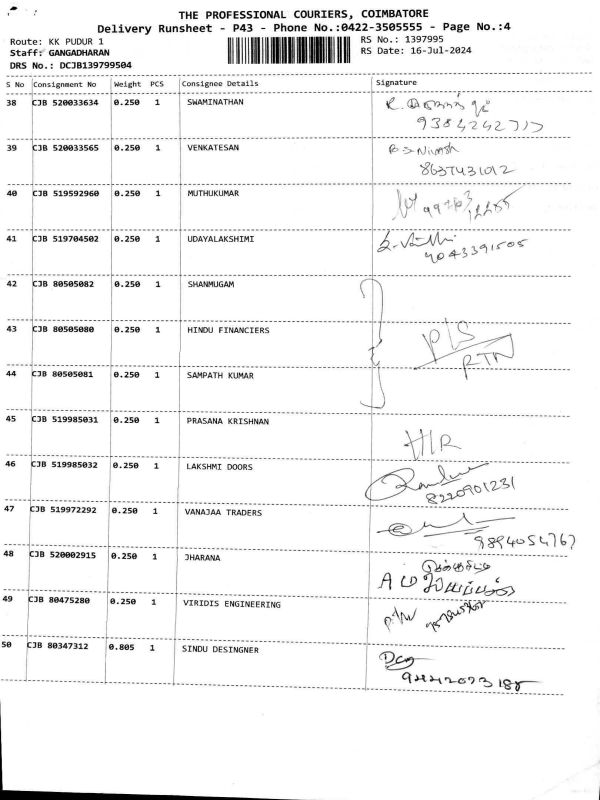 THE PROFESSIONAL COURIERS, COIMBATORE
Delivery Runsheet - P43 - Phone No.:0422-3505555 - Page No.:4
Route: KK PUDUR 1
RS No.: 1397995
Staff: GANGADHARAN
RS Date: 16-Jul-2024
DRS No.: DCJB139799504
S No Consignment No Weight PCS Consignee Details Signature
38 CJB 520033634 0.250 1 SWAMINATHAN
39 CJB 520033565 0.250 1 VENKATESAN
8637431012
40 CJB 519592960 0.250 1 MUTHUKUMAR
41 CJB 519704502 0.250 1 UDAYALAKSHIMI
9043391505
42 CJB 80505082 0.250 1 SHANMUGAM
43 CJB 80505080 0.250 1 HINDU FINANCIERS
P/S
RTN
44 CJB 80505081 0.250 1 SAMPATH KUMAR
45 CJB 519985031 0.250 1 PRASANA KRISHNAN
H/R
46 CJB 519985032 0.250 1 LAKSHMI DOORS
8220901231
47 CJB 519972292 0.250 1 VANAJAA TRADERS
9894054767
48 CJB 520002915 0.250 1 JHARANA
49 CJB 80475280 0.250 1 VIRIDIS ENGINEERING
50 CJB 80347312 0.805 1 SINDU DESINGNER